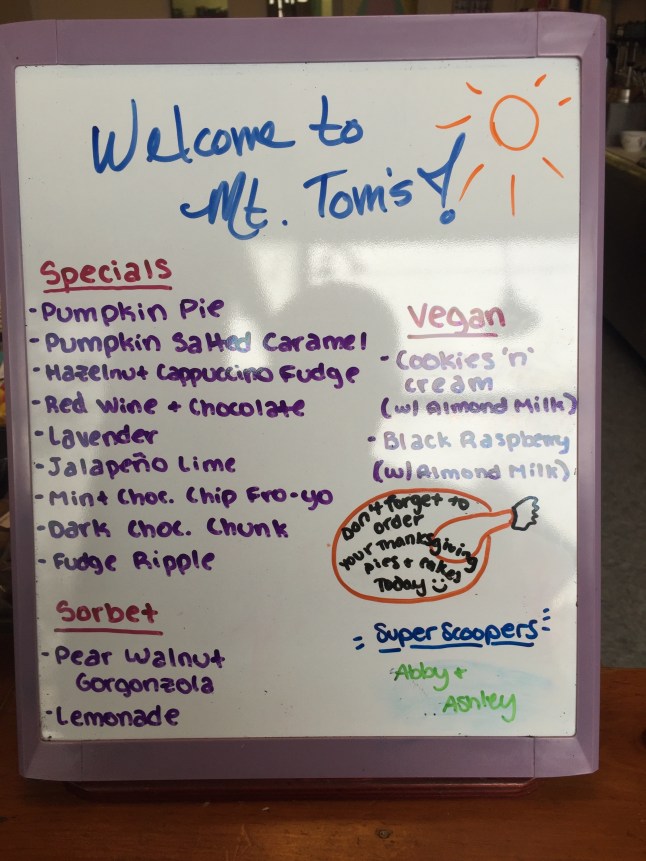 Welcome to
Mt. Tom's!
Specials
- Pumpkin Pie
- Pumpkin Salted Caramel
- Hazelnut Cappuccino Fudge
- Red Wine + Chocolate
- Lavender
- Jalapeño Lime
- Mint Choc. Chip Fro-yo
- Dark Choc. Chunk
- Fudge Ripple
Sorbet
- Pear Walnut
Gorgonzola
- Lemonade
Vegan
- Cookies 'n'
cream
(w/ Almond Milk)
- Black Raspberry
(w/ Almond Milk)
Don't forget to
order
your Thanksgiving
pies + cakes
Today
Super Scoopers
Abby +
Ashley